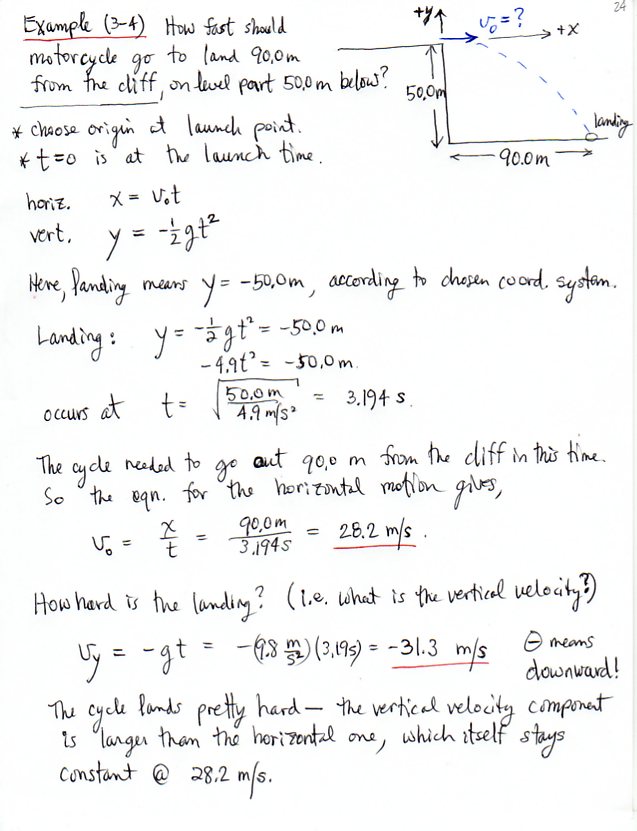 24
Example (3-4) How fast should
motorcycle go to land 90.0m
from the cliff, on level part 50.0m below?
+y
v₀ = ?
+x
50.0m
landing
90.0m
* choose origin at launch point.
* t=0 is at the launch time.
horiz. x = v₀t
vert. y = -½gt²
Here, landing means y = -50.0m, according to chosen coord. system.
Landing: y = -½gt² = -50.0 m
-4.9t² = -50.0m.
occurs at t = √(50.0m / 4.9 m/s²) = 3.194 s.
The cycle needed to go out 90.0 m from the cliff in this time.
So the eqn. for the horizontal motion gives,
v₀ = x/t = 90.0m / 3.194s = 28.2 m/s.
How hard is the landing? (i.e. what is the vertical velocity?)
vy = -gt = -(9.8 m/s²)(3.19s) = -31.3 m/s ⊖ means
downward!
The cycle lands pretty hard — the vertical velocity component
is larger than the horizontal one, which itself stays
constant @ 28.2 m/s.